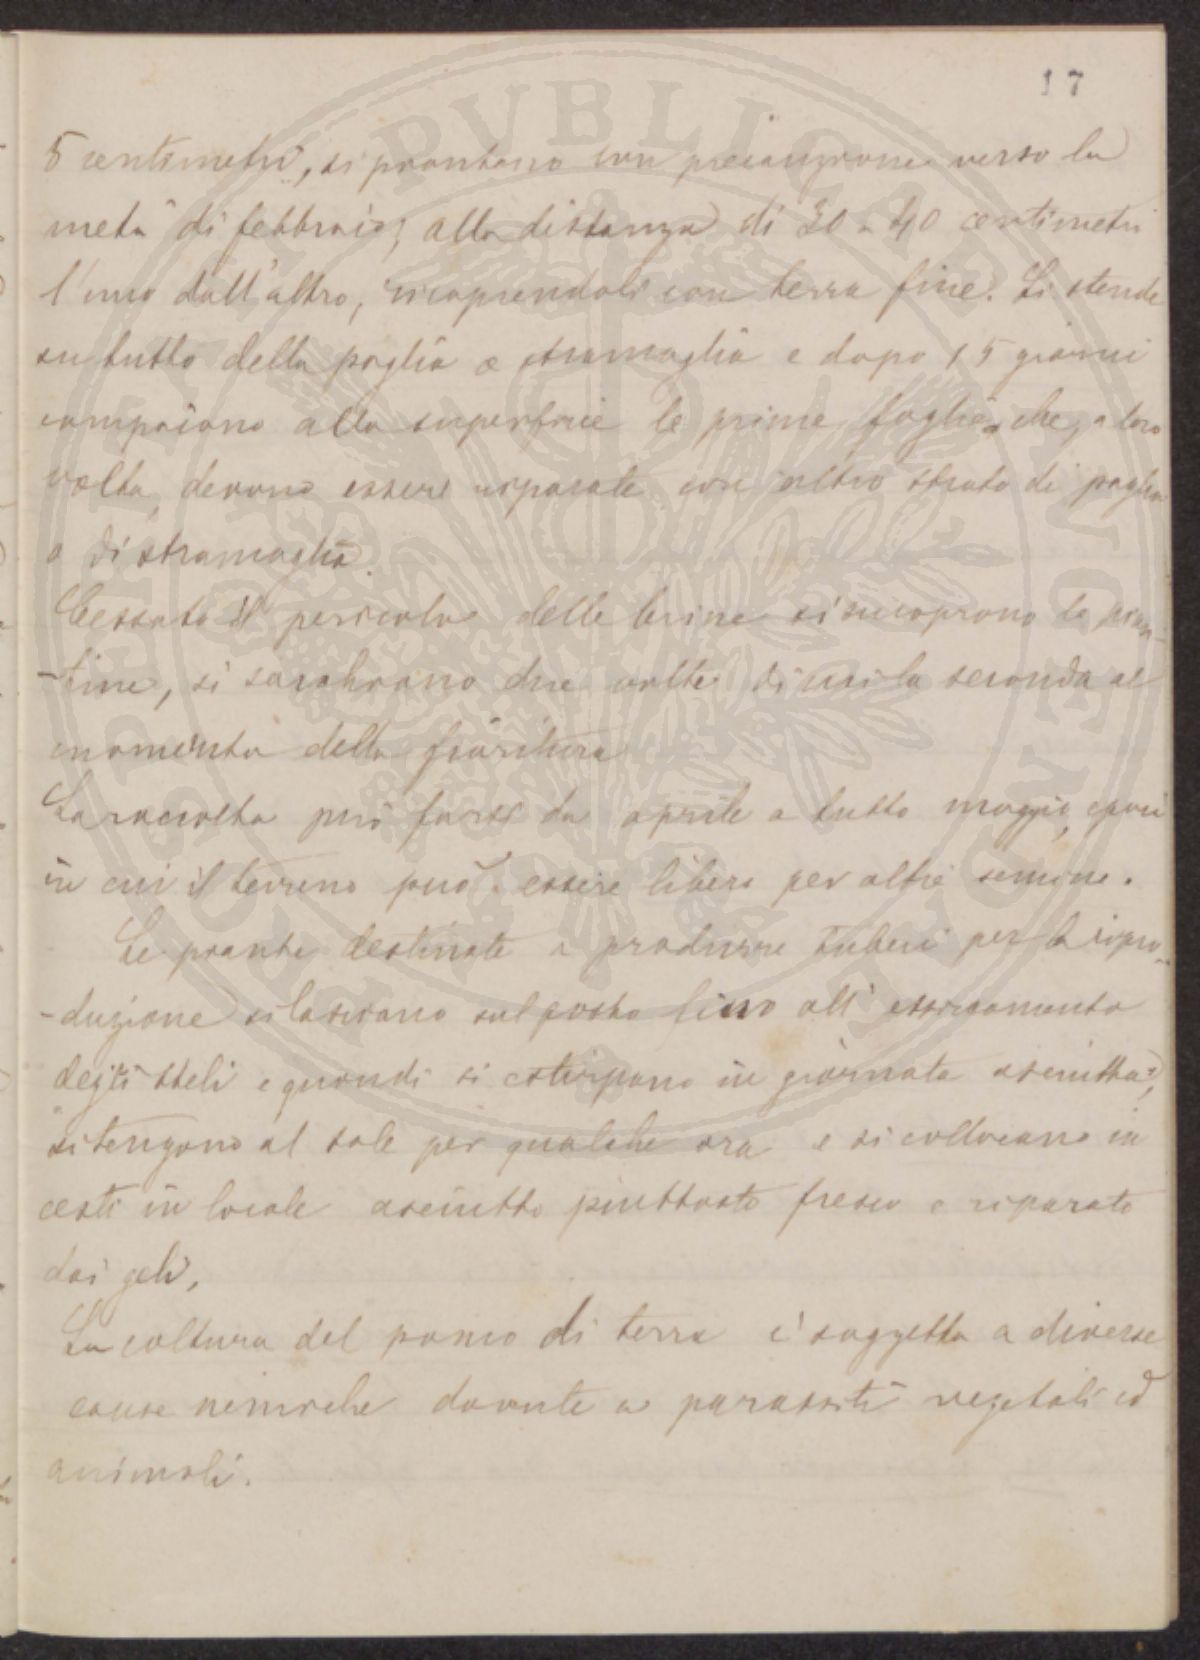 17
5 centimetri, si piantano con precauzione verso la
metà di febbraio, alla distanza di 30 a 40 centimetri
l'uno dall'altro, ricoprendoli con terra fine. Si stende
su tutto della paglia o stramaglia e dopo 15 giorni
compaiono alla superficie le prime foglie che, a loro
volta, devono essere riparate con altro strato di paglia
o di stramaglia.
Cessato il pericolo delle brine si ricoprono le pian-
-tine, si sarchiano due volte di cui la seconda al
momento della fioritura
La raccolta può farsi da aprile a tutto maggio, epoca
in cui il terreno può essere libero per altre semine.
Le piante destinate a produrre tuberi per la ripro-
-duzione si lasciano sul posto fino all'essicamento
degli steli e quindi si estirpano in giornata asciutta,
si tengono al sole per qualche ora e si collocano in
cesti in locale asciutto piuttosto fresco e riparato
dai geli.
La coltura del pomo di terra è soggetta a diverse
cause nemiche dovute a parassiti vegetali ed
animali.
PVBLICAE